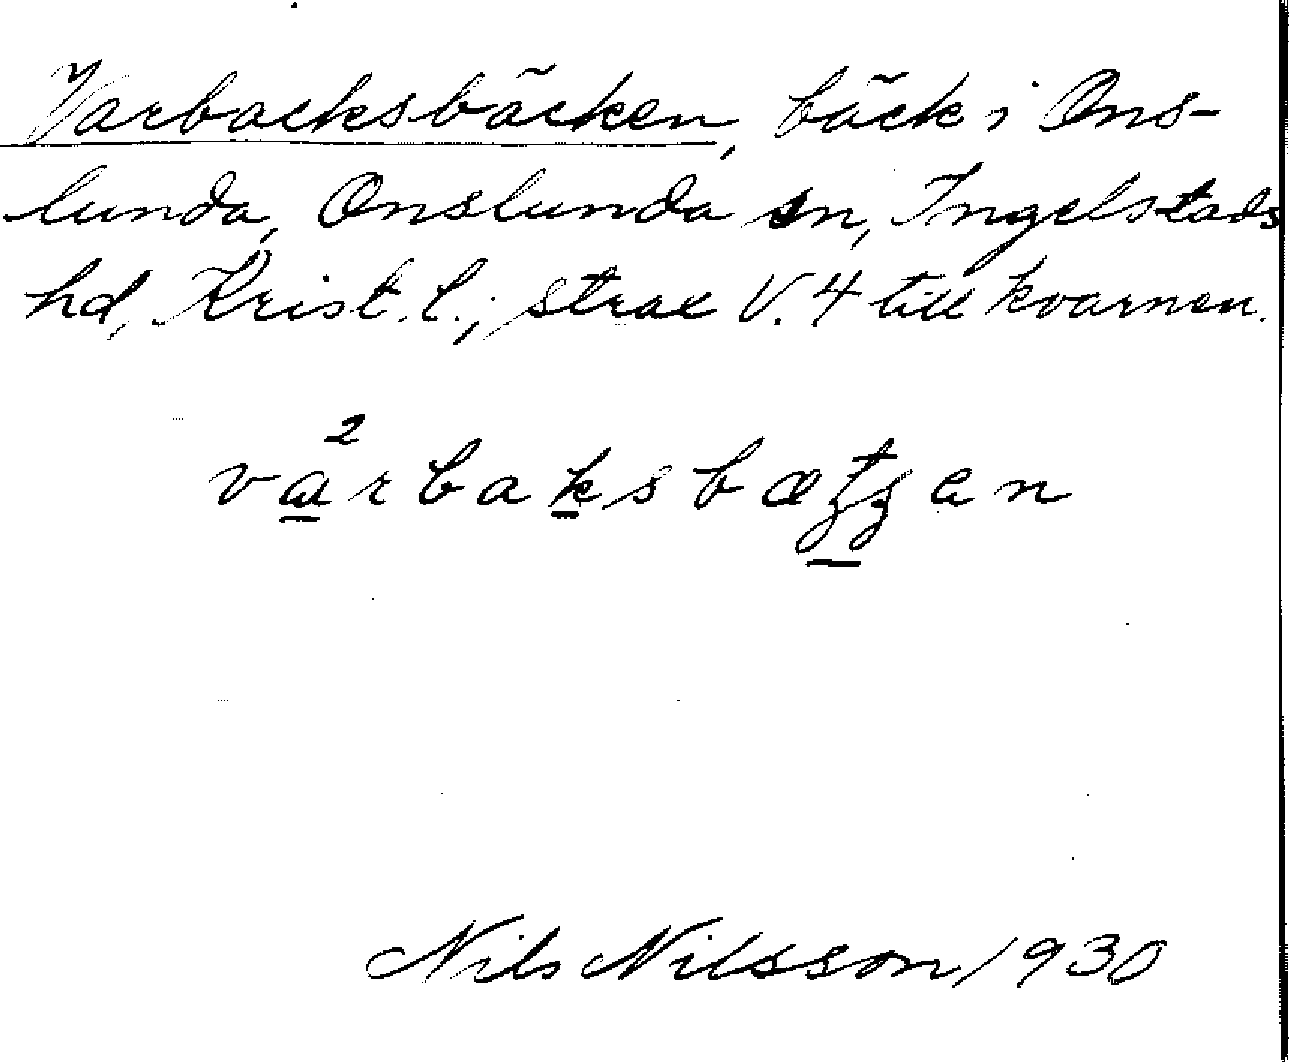 Varbacksbäcken, bäck i Ons-
lunda, Onslunda sn, Ingelstads
hd, Krist. l.; strax V. 4 till kvarnen.
Nils Nilsson, 1930